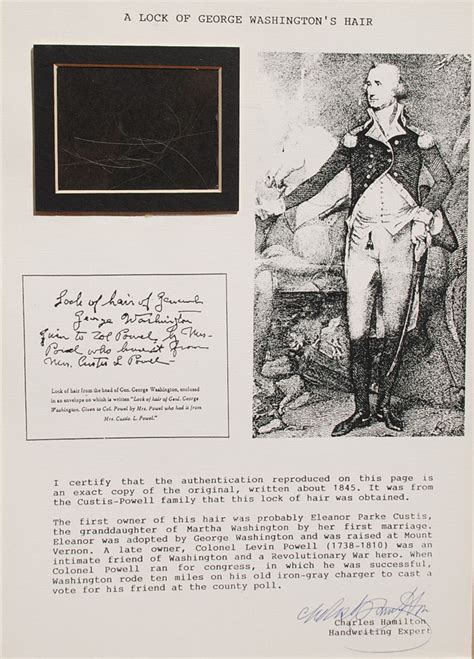 A LOCK OF GEORGE WASHINGTON'S HAIR
Lock of hair of General
George Washington
Given to Col Powel by Mrs.
Powel who had it from
Mrs. Custis L Powel
Lock of hair from the head of Gen. George Washington, enclosed
in an envelope on which is written "Lock of hair of Genl. George
Washington. Given to Col. Powel by Mrs. Powel who had it from
Mrs. Custis. L. Powel."
I certify that the authentication reproduced on this page is
an exact copy of the original, written about 1845. It was from
the Custis-Powell family that this lock of hair was obtained.
The first owner of this hair was probably Eleanor Parke Custis,
the granddaughter of Martha Washington by her first marriage.
Eleanor was adopted by George Washington and was raised at Mount
Vernon. A late owner, Colonel Levin Powell (1738-1810) was an
intimate friend of Washington and a Revolutionary War hero. When
Colonel Powell ran for congress, in which he was successful,
Washington rode ten miles on his old iron-gray charger to cast a
vote for his friend at the county poll.
Charles Hamilton
Charles Hamilton
Handwriting Expert